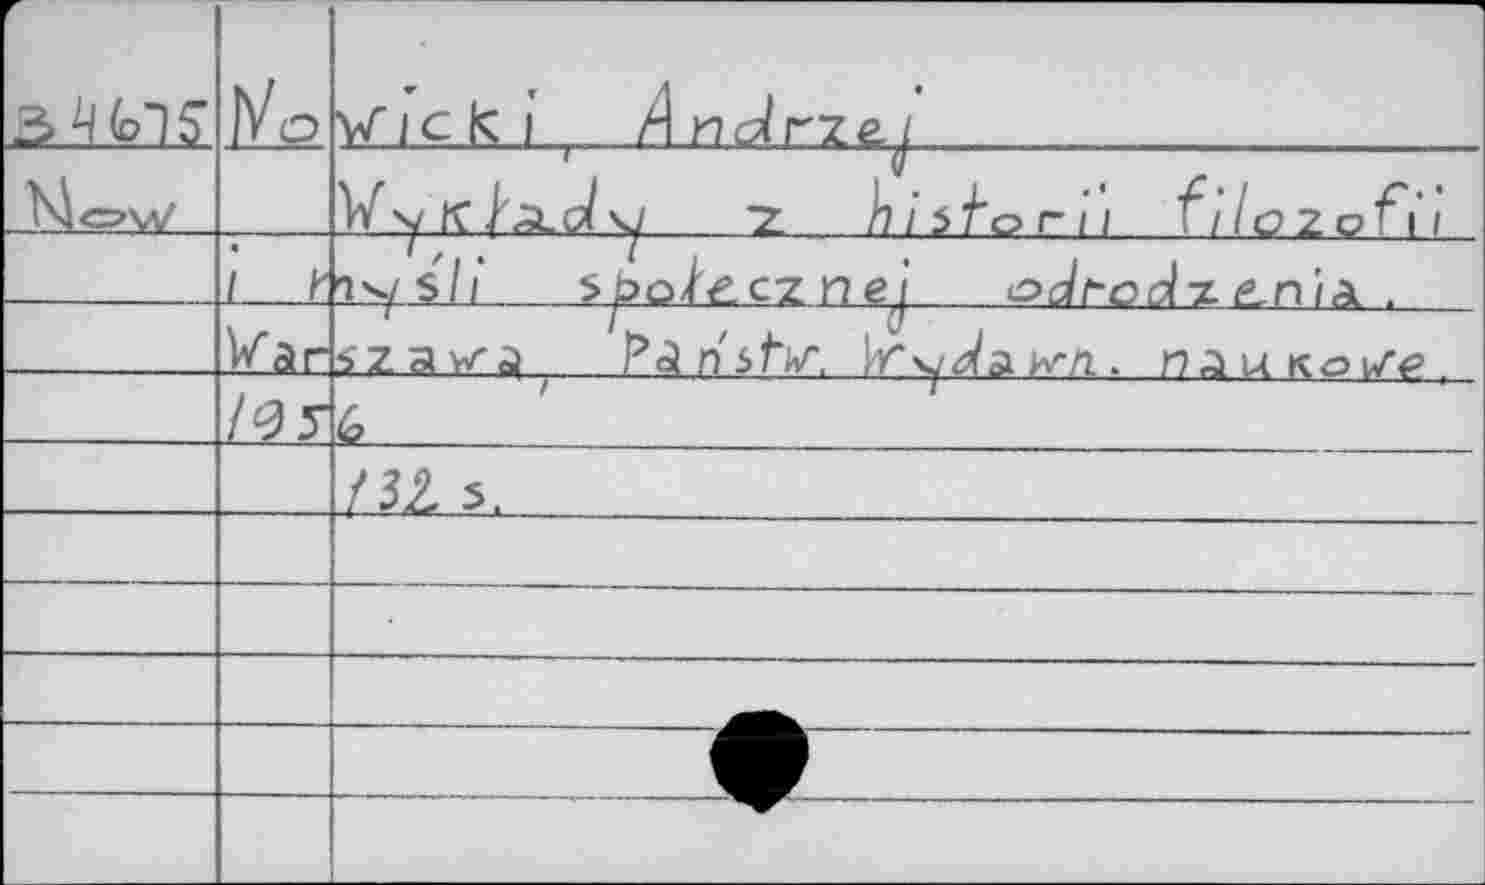 B4675 Nowicki, Andrzej
Now Wykłady z historii filozofii
i myśli społecznej odrodzenia.
Warszawa, Państw. Wydawn. naukowe.
1956
132 s.